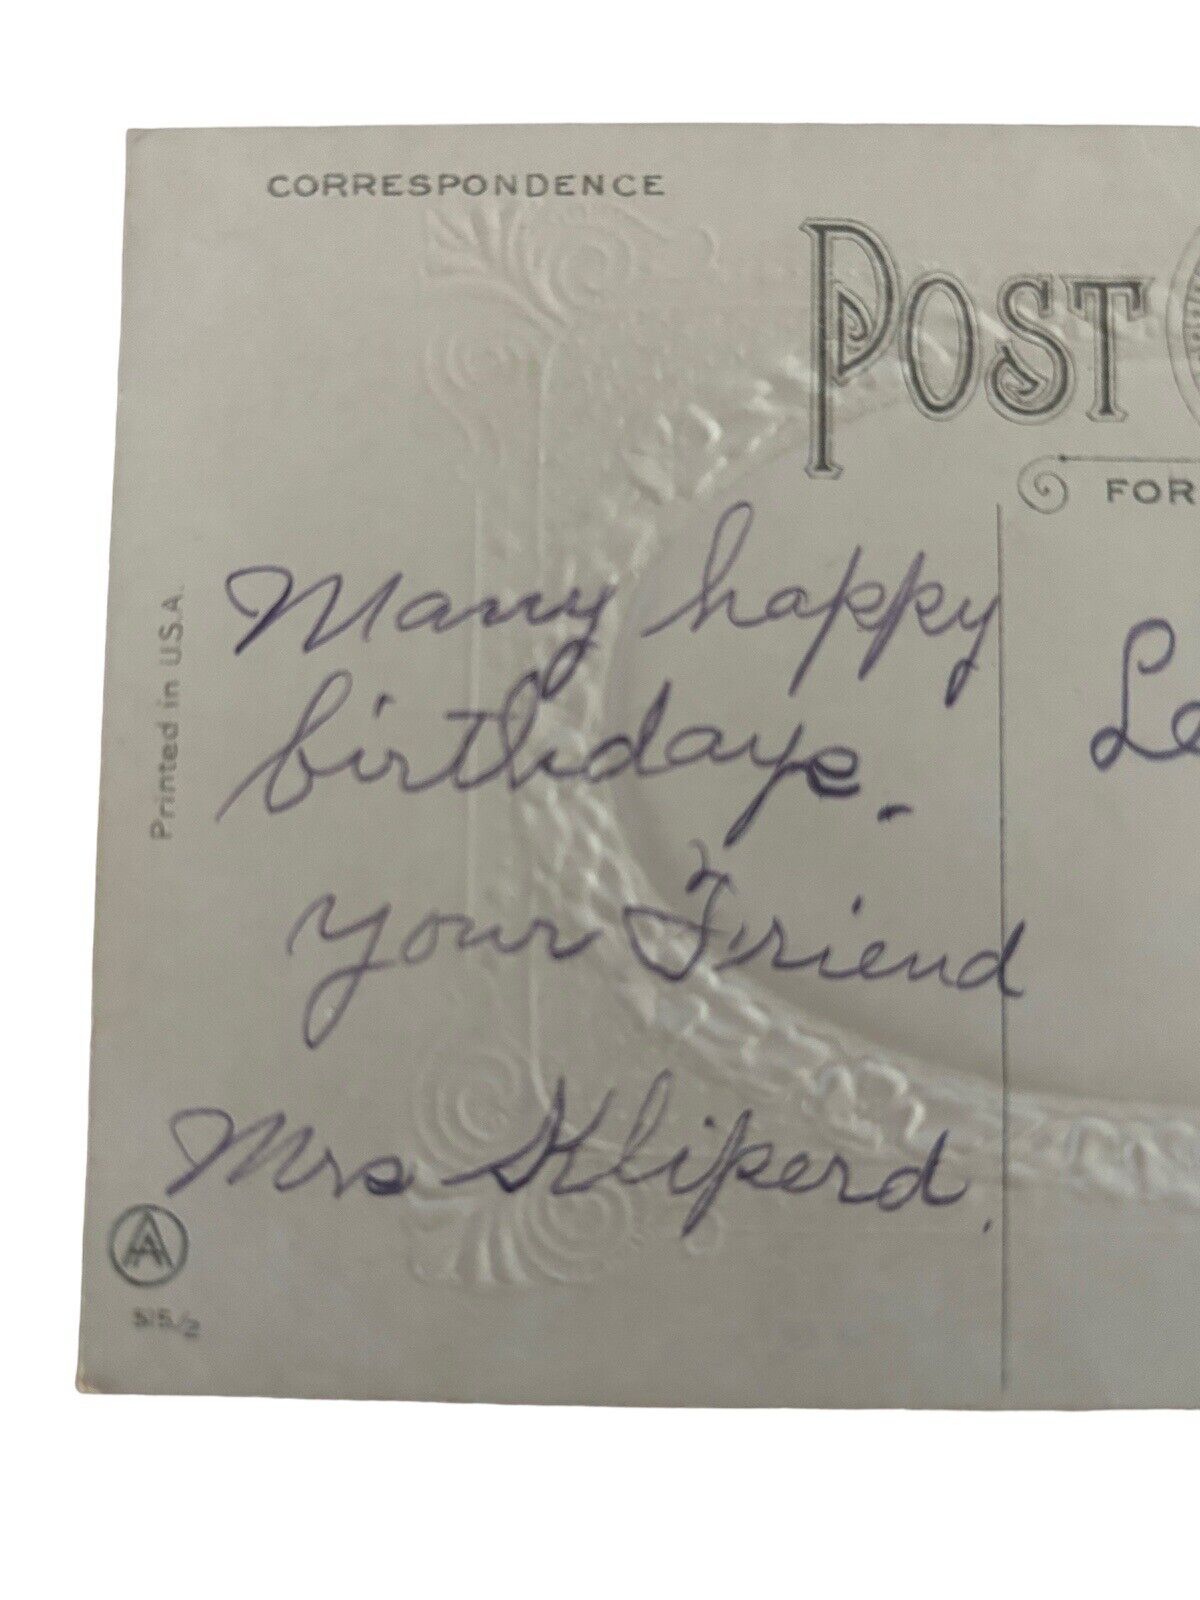 CORRESPONDENCE
POST
FOR
Many happy
birthdays.
Le
your Friend
Mrs Kliperd.
Printed in U.S.A.
AA
515/2